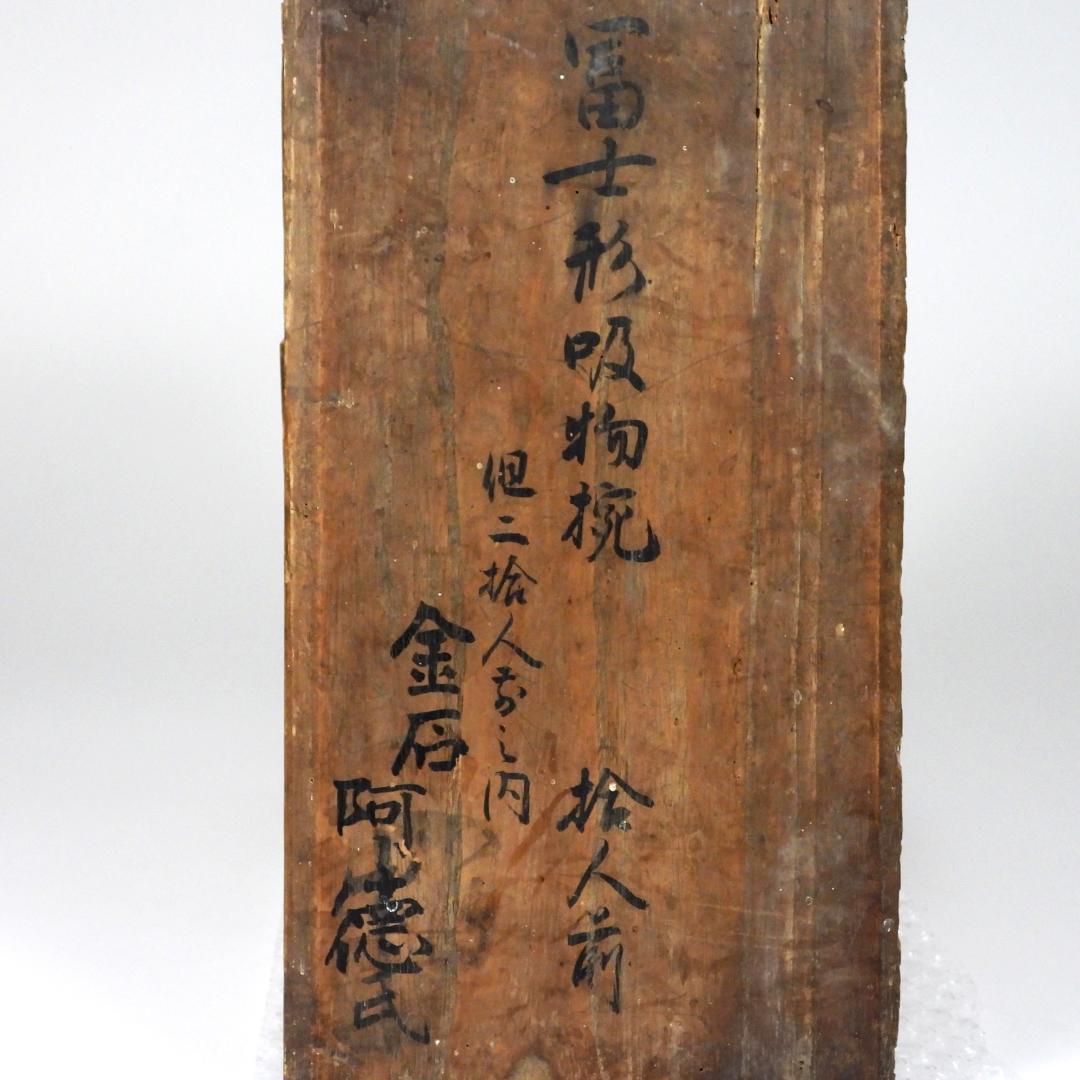 冨士形吸物椀 拾人前
但二拾人前之内
金石
阿徳氏